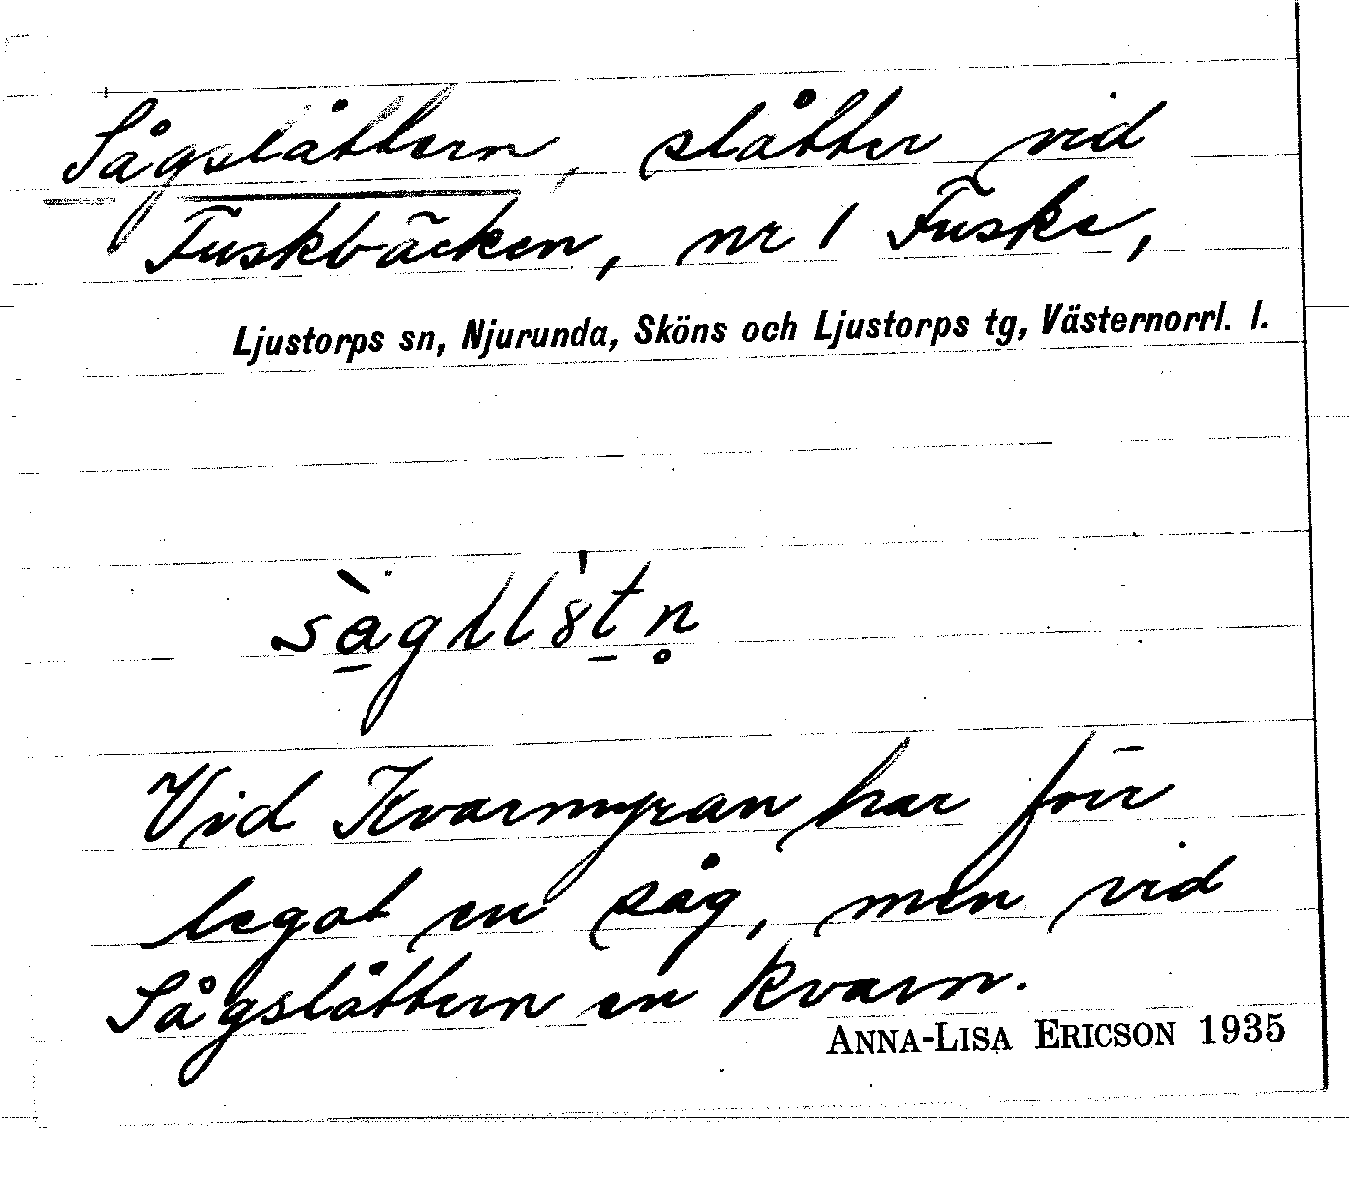 Sågslåttern, slåtter vid
Fuskbäcken, nr 1 Fuske,
Ljustorps sn, Njurunda, Sköns och Ljustorps tg, Västernorrl. l.
Vid Kvarnmyran har förr
legat en såg, men vid
Sågslåttern en kvarn.
ANNA-LISA ERICSON 1935